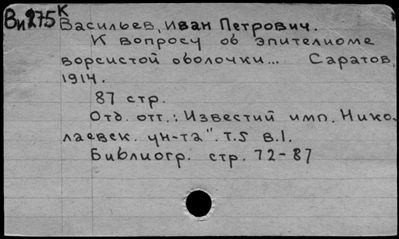 Ви275 К
Васильев, Иван Петрович.
К вопросу об эпителиоме
ворсистой оболочки... Саратов,
1914.
87 стр.
Отд. отт.: Известий имп. Нико-
лаевск. ун-та". т.5 в.1.
Библиогр. стр. 72-87